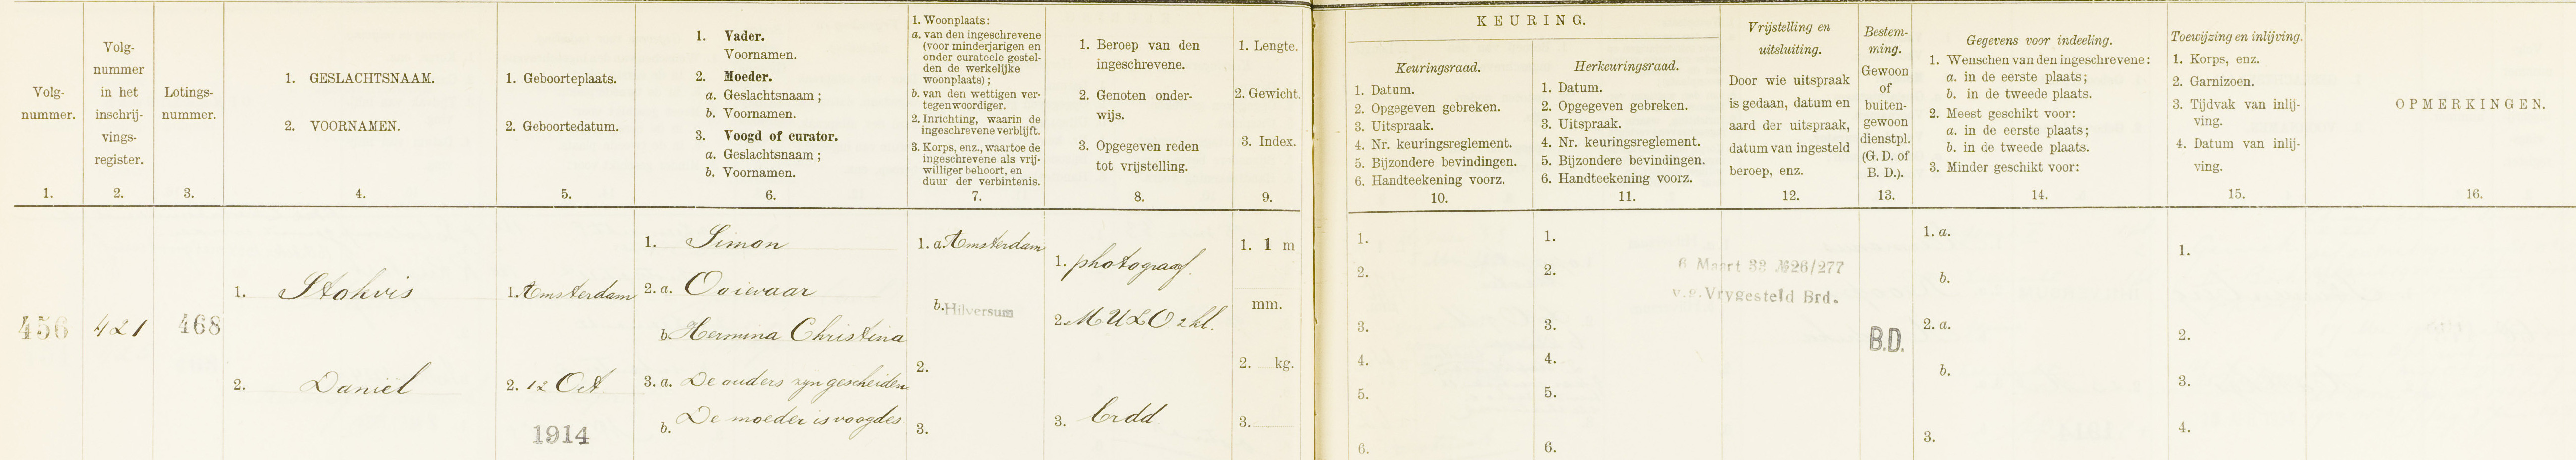 Volg-
nummer.
1.
Volg-
nummer
in het
inschrij-
vings-
register.
2.
Lotings-
nummer.
3.
1. GESLACHTSNAAM.
2. VOORNAMEN.
4.
1. Geboorteplaats.
2. Geboortedatum.
5.
1. Vader.
Voornamen.
2. Moeder.
a. Geslachtsnaam;
b. Voornamen.
3. Voogd of curator.
a. Geslachtsnaam;
b. Voornamen.
6.
1. Woonplaats:
a. van den ingeschrevene
(voor minderjarigen en
onder curateele gestel-
den de werkelijke
woonplaats);
b. van den wettigen ver-
tegenwoordiger.
2. Inrichting, waarin de
ingeschrevene verblijft.
3. Korps, enz., waartoe de
ingeschrevene als vrij-
williger behoort, en
duur der verbintenis.
7.
1. Beroep van den
ingeschrevene.
2. Genoten onder-
wijs.
3. Opgegeven reden
tot vrijstelling.
8.
1. Lengte.
2. Gewicht.
3. Index.
9.
KEURING.
Keuringsraad.
1. Datum.
2. Opgegeven gebreken.
3. Uitspraak.
4. Nr. keuringsreglement.
5. Bijzondere bevindingen.
6. Handteekening voorz.
10.
Herkeuringsraad.
1. Datum.
2. Opgegeven gebreken.
3. Uitspraak.
4. Nr. keuringsreglement.
5. Bijzondere bevindingen.
6. Handteekening voorz.
11.
Vrijstelling en
uitsluiting.
Door wie uitspraak
is gedaan, datum en
aard der uitspraak,
datum van ingesteld
beroep, enz.
12.
Bestem-
ming.
Gewoon
of
buiten-
gewoon
dienstpl.
(G. D. of
B. D.).
13.
Gegevens voor indeeling.
1. Wenschen van den ingeschrevene:
a. in de eerste plaats;
b. in de tweede plaats.
2. Meest geschikt voor:
a. in de eerste plaats;
b. in de tweede plaats.
3. Minder geschikt voor:
14.
Toewijzing en inlijving.
1. Korps, enz.
2. Garnizoen.
3. Tijdvak van inlij-
ving.
4. Datum van inlij-
ving.
15.
OPMERKINGEN.
16.
456
421
468
1. Stokvis
2. Daniël
1. Amsterdam
2. 12 Oct
1914
1. Simon
2. a. Ooievaar
b. Hermina Christina
3. a. De ouders zyn gescheiden
b. De moeder is voogdes
1. a. Amsterdam
b. Hilversum
2.
3.
1. photograaf.
2. MULO 2 kl.
3. Brdd
1. 1 m
mm.
2. kg.
3.
1.
2.
3.
4.
5.
6.
1.
2.
3.
4.
5.
6.
8 Maart 33 №26/277
v.g. Vrygesteld Brd.
B.D.
1. a.
b.
2. a.
b.
3.
1.
2.
3.
4.